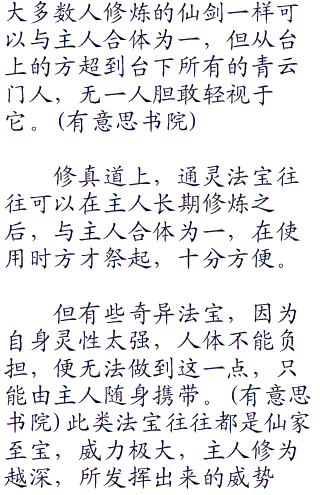 大多数人修炼的仙剑一样可
以与主人合体为一，但从台
上的方超到台下所有的青云
门人，无一人胆敢轻视于
它。(有意思书院)
修真道上，通灵法宝往
往可以在主人长期修炼之
后，与主人合体为一，在使
用时方才祭起，十分方便。
但有些奇异法宝，因为
自身灵性太强，人体不能负
担，便无法做到这一点，只
能由主人随身携带。(有意思
书院)此类法宝往往都是仙家
至宝，威力极大，主人修为
越深，所发挥出来的威势